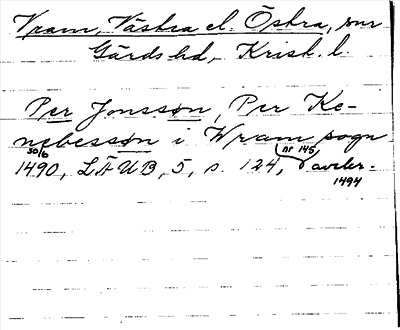 Vram, Västra el. Östra, snr
Gärds hd, Krist. l.
Per Jonssøn, Per Ke-
nebessøn i Wram sogn
30/6 nr 145,
1490, LÄUB, 5, s. 124, avskr.
1494